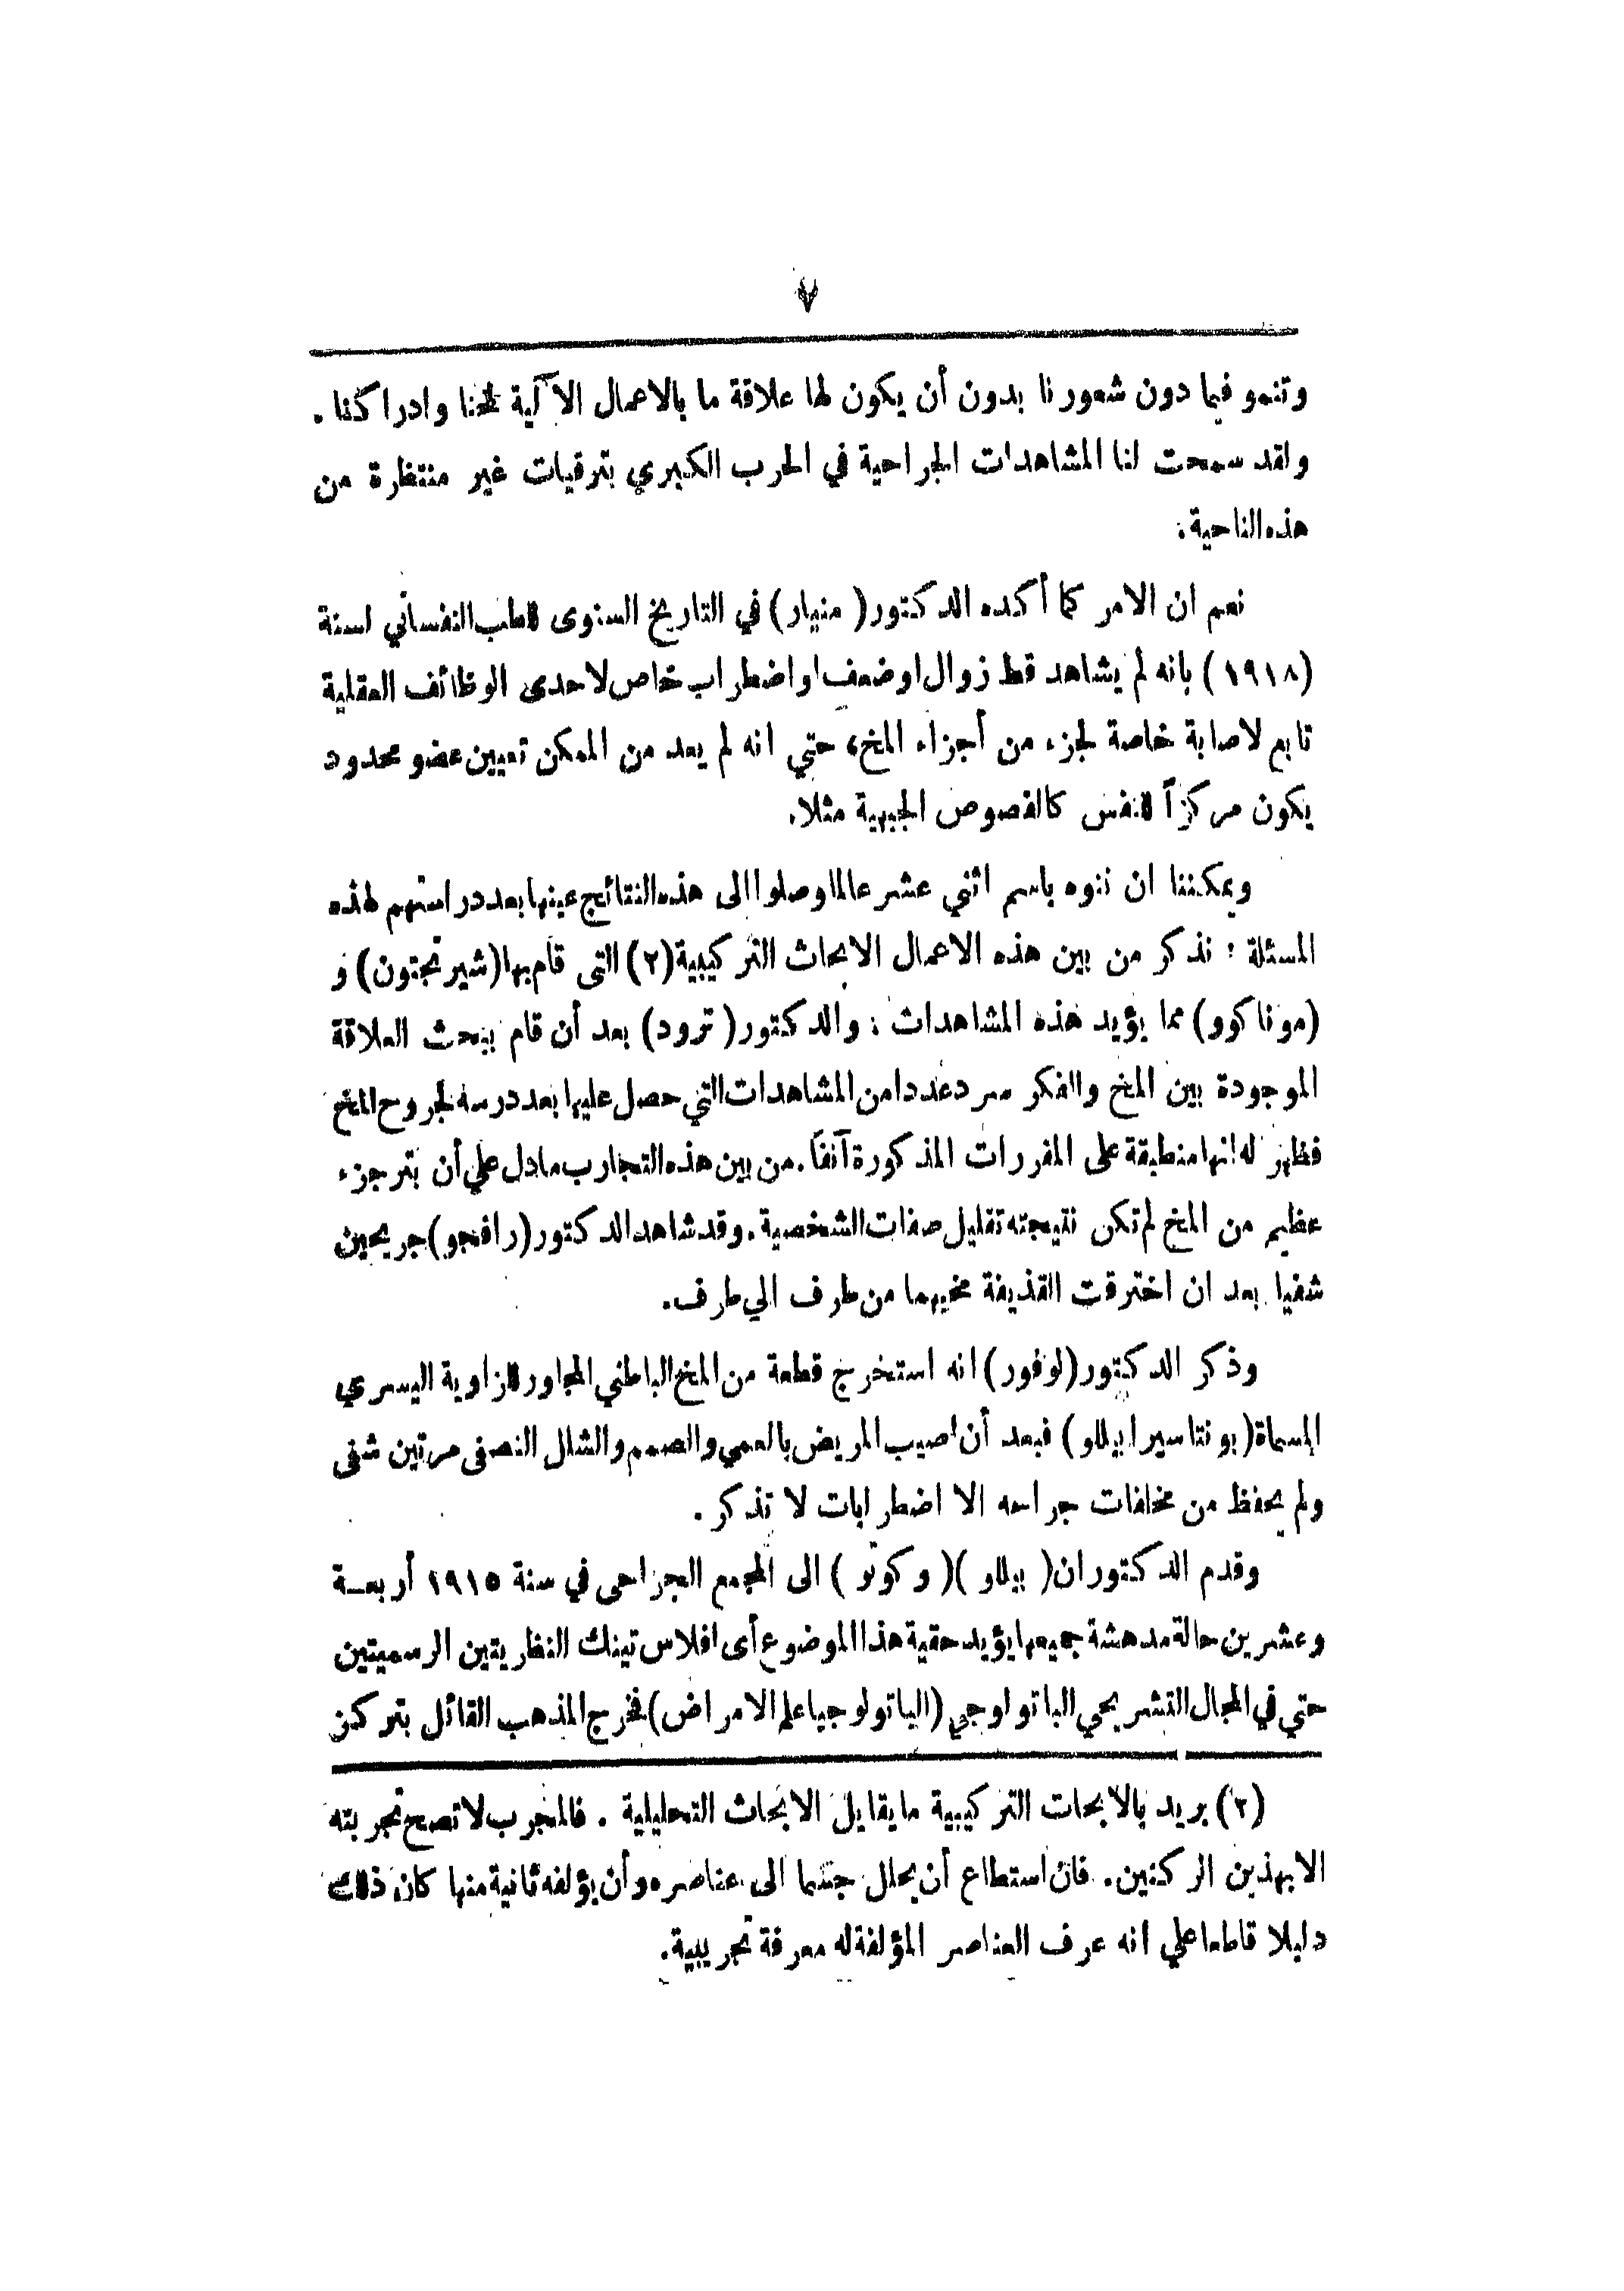 ٧
وتنمو فيما دون شعورنا بدون أن يكون لها علاقة ما بالاعمال الآلية لمخنا وادراكنا .
ولقد سمحت لنا المشاهدات الجراحية في الحرب الكبري بترقيات غير منتظرة من
هذه الناحية.
نعم ان الامر كما أكده الدكتور ( منيار ) في التاريخ السنوى للطب النفساني لسنة
(١٩١٨) بانه لم يشاهد قط زوال او ضعف او اضطراب خاص لاحدى الوظائف العقلية
تابع لاصابة خاصة لجزء من أجزاء المخ، حتي انه لم يعد من الممكن تعيين عضو محدود
يكون مركزاً للنفس كالفصوص الجبهية مثلا.
ويمكننا ان ننوه باسم اثني عشر عالما وصلوا الى هذه النتائج عينها بعد دراستهم لهذه
المسئلة : نذكر من بين هذه الاعمال الابحاث التركيبية (٢) التى قام بها (شيرنجتون) و
(موناكوو) مما يؤيد هذه المشاهدات : والدكتور ( ترود) بعد أن قام ببحث العلاقة
الموجودة بين المخ والفكر سرد عددا من المشاهدات التي حصل عليها بعد درسه لجروح المخ
فظهر له انها منطبقة على المقررات المذكورة آنفاً . من بين هذه التجارب ما دل علي أن بتر جزء
عظيم من المخ لم تكن نتيجته تقليل صفات الشخصية . وقد شاهد الدكتور (رافجو) جريحين
شفيا بعد ان اخترقت القذيفة مخيهما من طرف الي طرف.
وذكر الدكتور (لوفور) انه استخرج قطعة من المخ الباطني المجاور للزاوية اليسري
المسماة (بونتاسيرابيللو) فبعد أن اصيب المريض بالعمي والصمم والشلل النصفى مرتين شفى
ولم يحفظ من مخلفات جراحه الا اضطرابات لا تذكر .
وقدم الدكتوران ( بيللو )( وكونو ) الى المجمع الجراحى في سنة ١٩١٥ أربعة
وعشرين حالة مدهشة جميعها يؤيد حقية هذا الموضوع أى افلاس تينك النظريتين الرسميتين
حتي في المجال التشريحي الباتولوجي (الباتولوجيا علم الامراض) فخرج المذهب القائل بتركن
(٢) يريد بالابحاث التركيبية ما يقابل الابحاث التحليلية . فالمجرب لا تصح تجربته
الا بهذين الركنين . فان استطاع أن يحلل جسما الى عناصره وأن يؤلفه ثانية منها كان ذلك
دليلا قاطعا علي انه عرف العناصر المؤلفة له معرفة تجريبية.